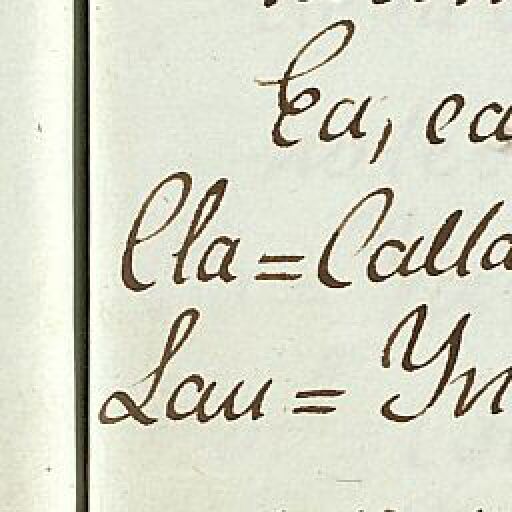 Ea, ea
Cla = Calla
Lau = Yn